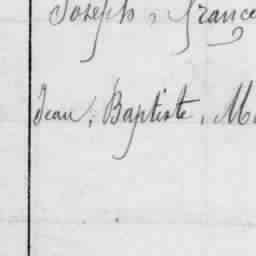 Joseph, france
Jean, Baptiste, M